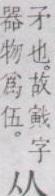 矛也。故戴字
器物爲伍。从